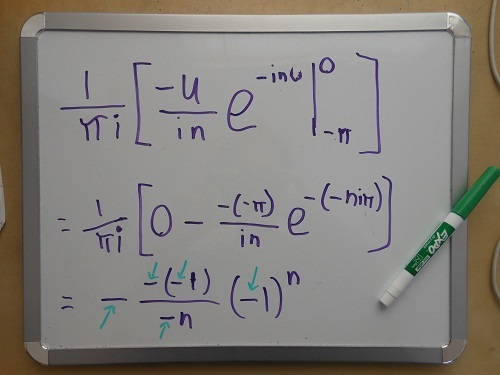 1/πi [ -u/in e^-inu |^0_-π ]
= 1/πi [ 0 - -(-π)/in e^-(-niπ) ]
= - -(-1)/-n (-1)^n
EXPO